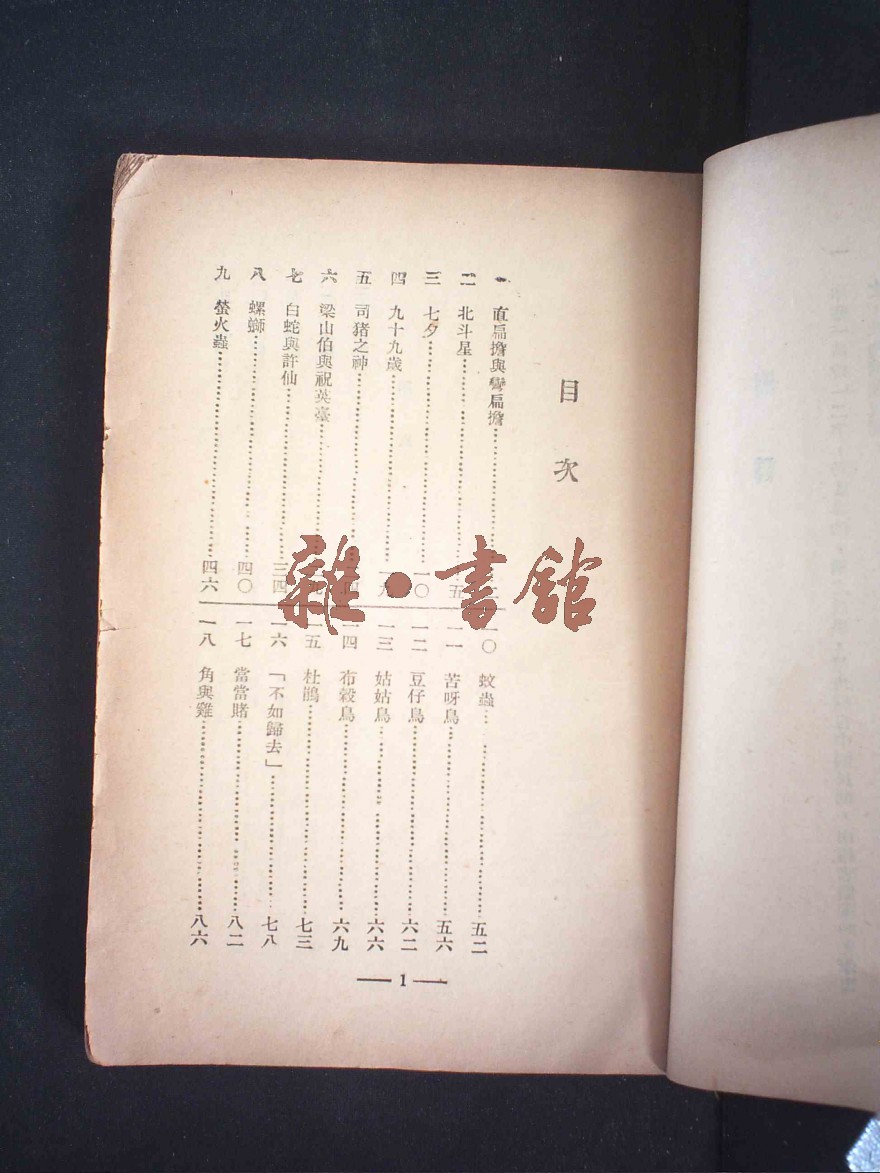 目次
一 直扁擔與彎扁擔
二 北斗星 五
三 七夕 一〇
四 九十九歲
五 司猪之神
六 梁山伯與祝英臺
七 白蛇與許仙 三四
八 螺螄 四〇
九 螢火蟲 四六
一〇 蚊蟲 五二
一一 苦呀鳥 五六
一二 豆仔鳥 六二
一三 姑姑鳥 六六
一四 布穀鳥 六九
一五 杜鵑 七三
一六 「不如歸去」 七八
一七 當當賭 八二
一八 角與雞 八六
1
雜·書館